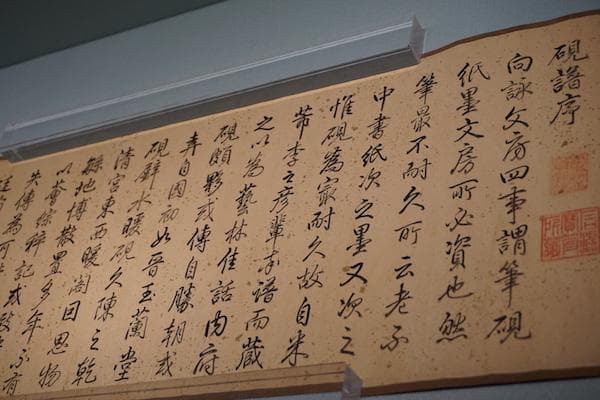 硯譜序
向詠文房四事謂筆硯
紙墨文房所必資也然
筆最不耐久所云老不
中書紙次之墨又次之
惟硯為最耐久故自米
芾李之彥輩率譜而藏
之以為藝林佳話內府
硯頗夥或傳自勝朝或
弆自國初如晉玉蘭堂
硯璧水暖硯久陳之乾
清宮東西暖閣因思物
地博散置多年不有
以薈綜粹記或致
失傳為可